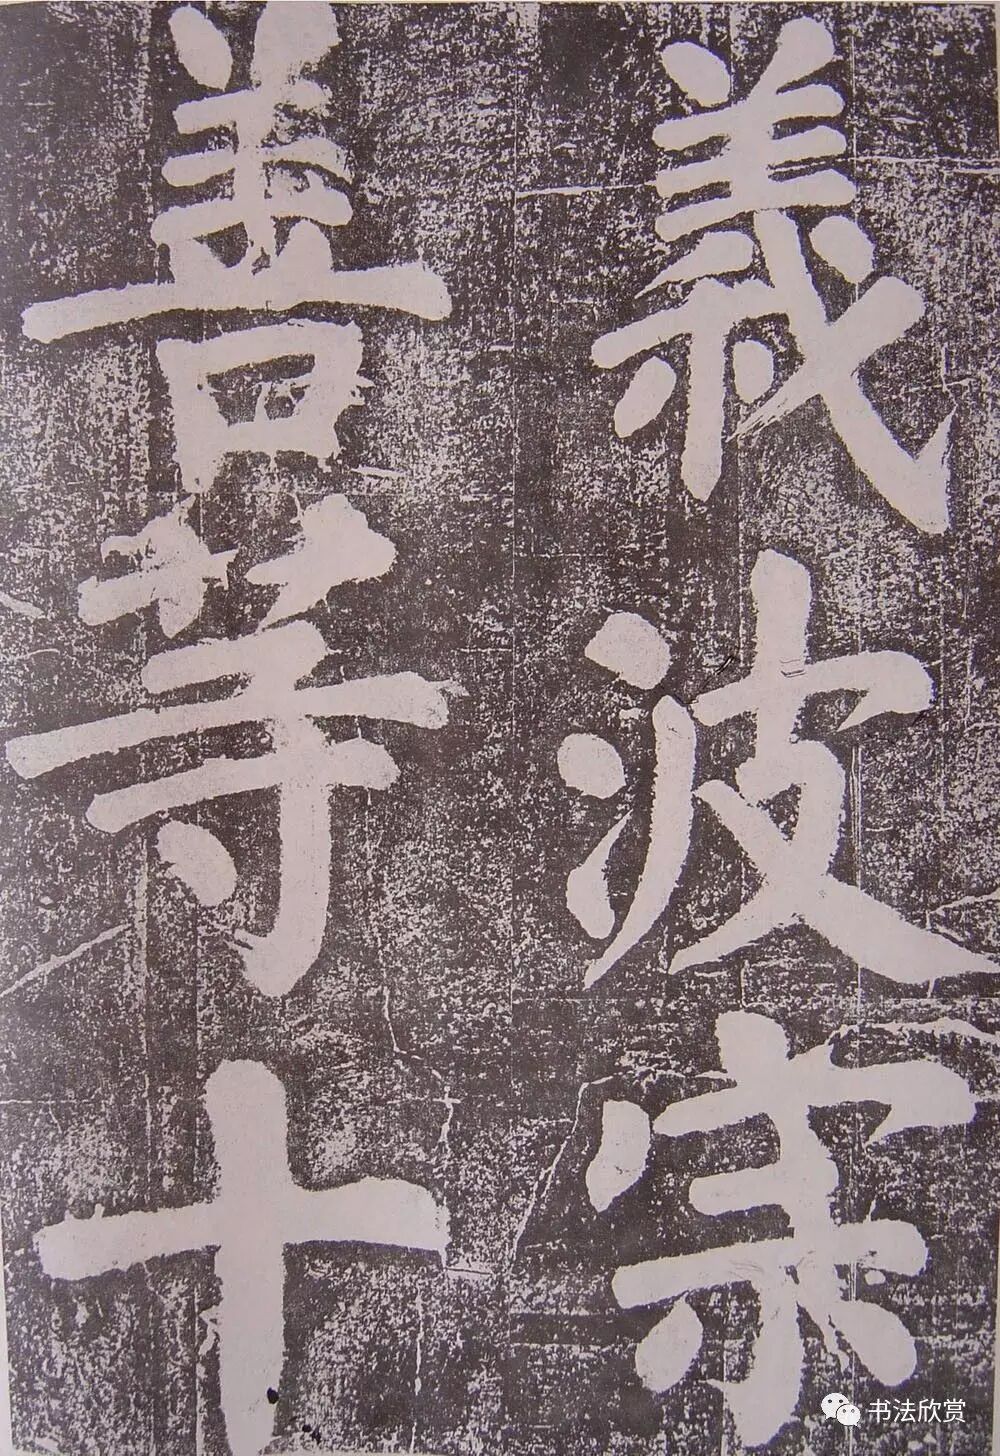 義波宗
善等十
书法欣赏